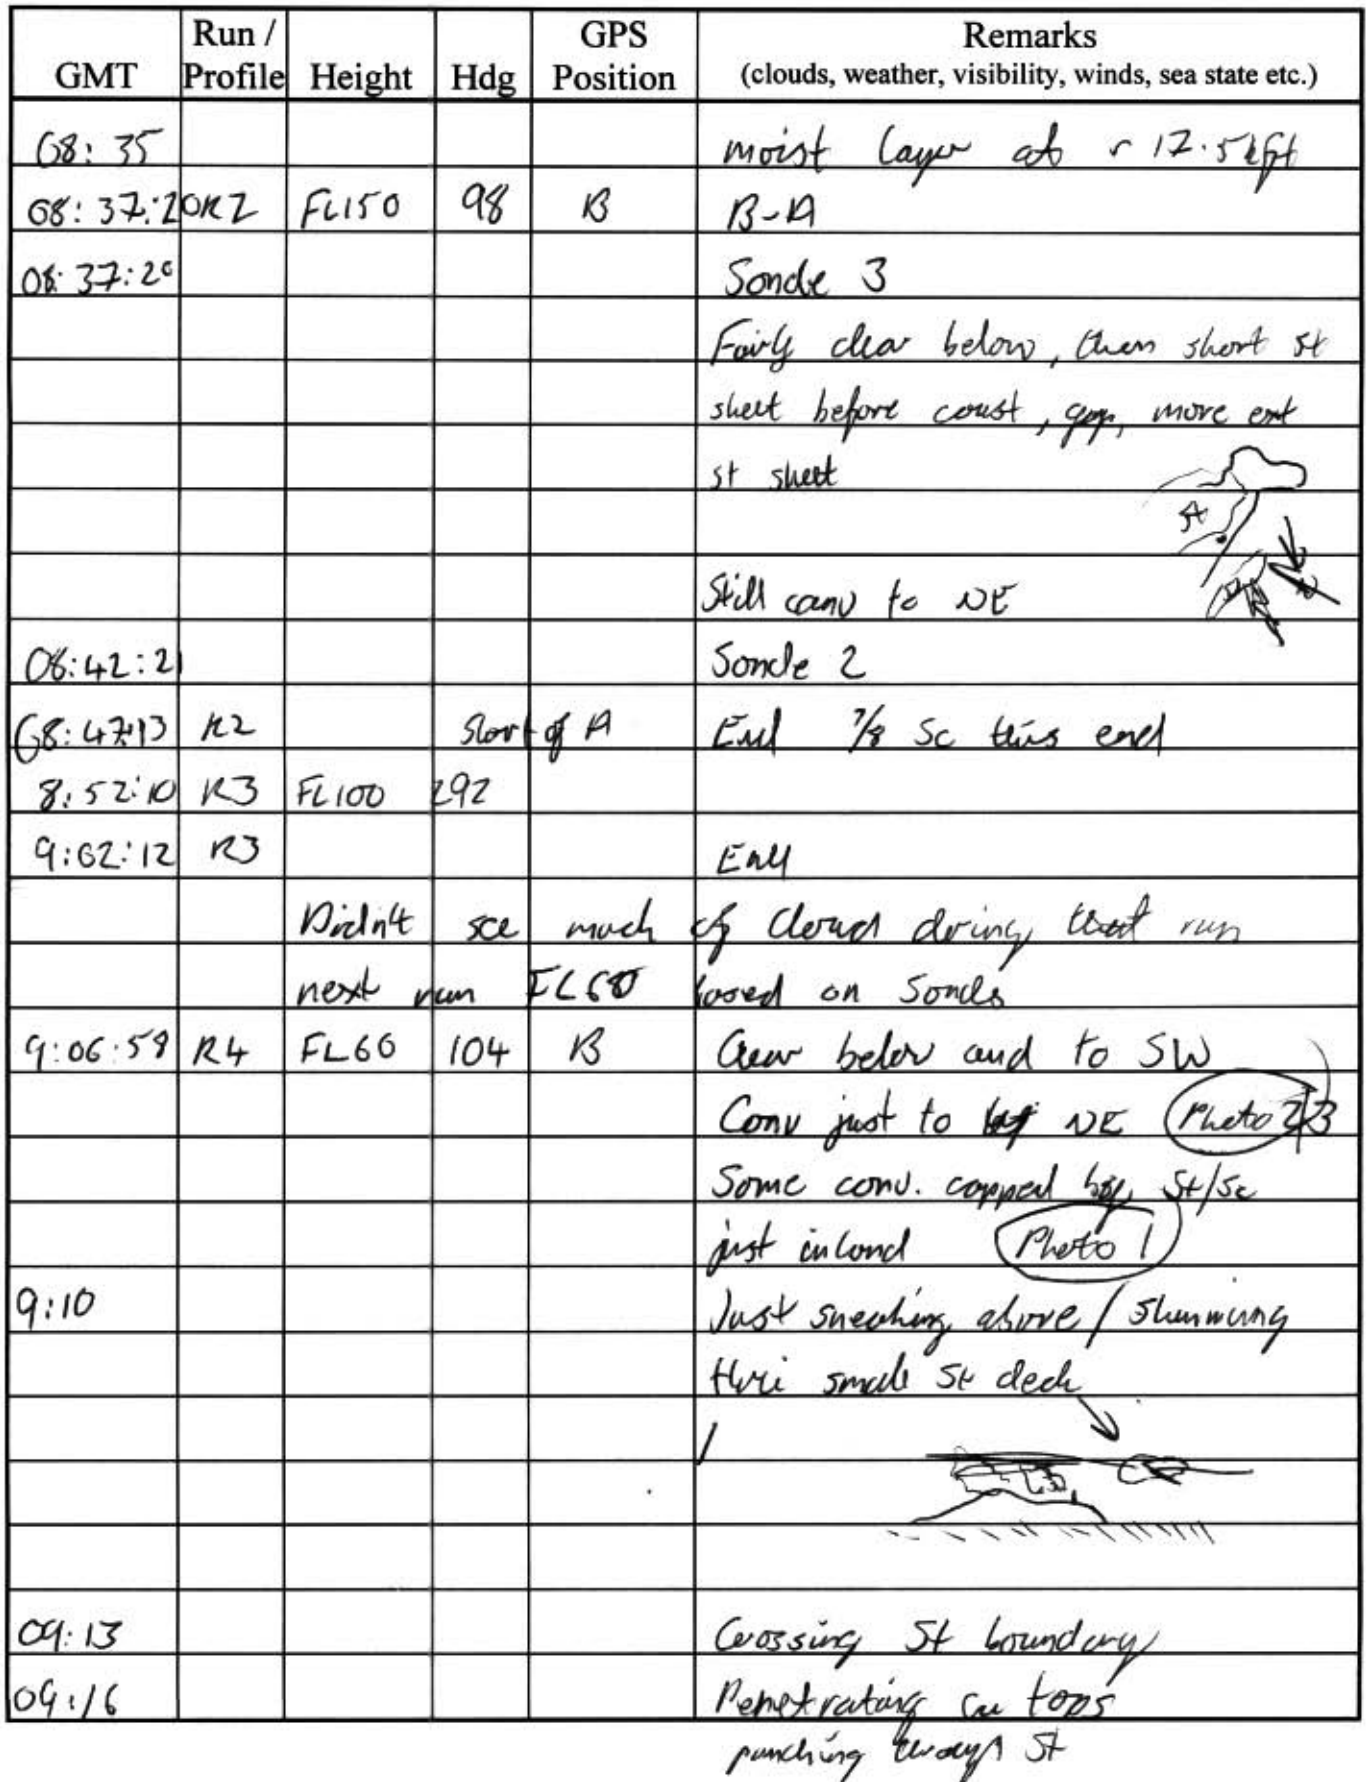 GMT Run / Profile Height Hdg GPS Position Remarks
(clouds, weather, visibility, winds, sea state etc.)
08:35 moist layer at ~ 17.5kft
08:37:20 R2 FL150 98 B B-A
08:37:20 Sonde 3
Fairly clear below, then short st
sheet before coast, gap, more ext
st sheet
St
Still conv to NE
08:42:21 Sonde 2
08:47:13 R2 Short of A End 7/8 Sc this end
8:52:10 R3 FL100 292
9:02:12 R3 End
Didn't see much of cloud during that run
next run FL60 based on Sonds
9:06:58 R4 FL60 104 B Clear below and to SW
Conv just to NE Photo 2/3
Some conv. capped by St/Sc
just inland Photo 1
9:10 Just sneaking above / skimming
thru small St deck
09:13 Crossing St boundary
09:16 Penetrating Cu tops
punching through St